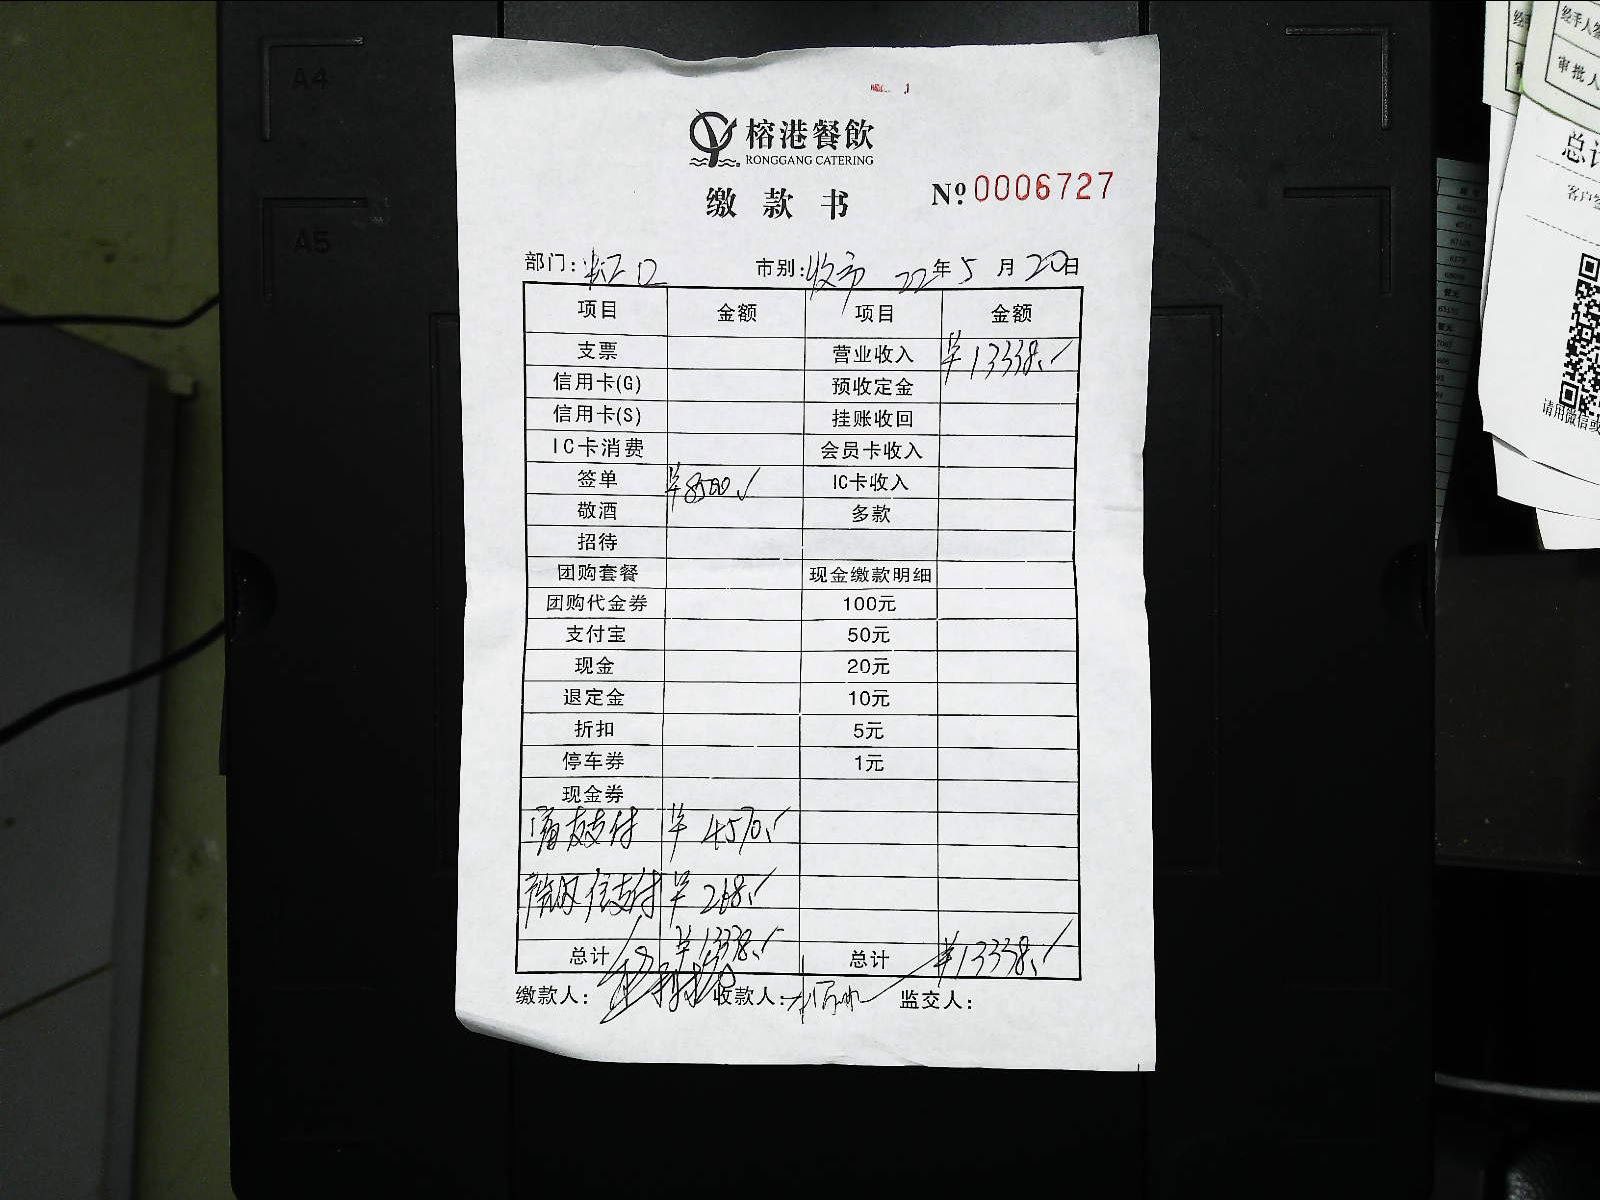 A4
A5
榕港餐飲
RONGGANG CATERING
缴款书
Nº 0006727
部门: 虹口 市别: 收市 22年5月20日
项目 金额 项目 金额
支票 营业收入 ¥13338.
信用卡(G) 预收定金
信用卡(S) 挂账收回
IC卡消费 会员卡收入
签单 ¥8500. IC卡收入
敬酒 多款
招待
团购套餐 现金缴款明细
团购代金券 100元
支付宝 50元
现金 20元
退定金 10元
折扣 5元
停车券 1元
现金券
支付 ¥4570.
信支付 ¥268.
总计 ¥13338. 总计 ¥13338.
缴款人: 收款人: 监交人:
经手人签
审批人
总计
客户签
请用微信或